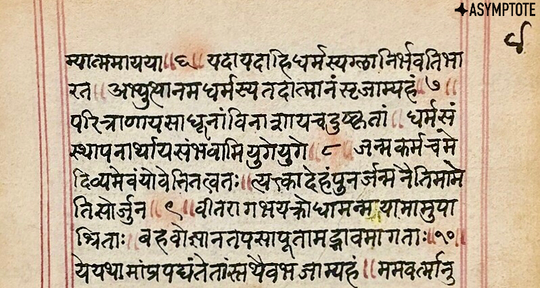 ASYMPTOTE
म्यात्ममायया॥६॥यदायदाहिधर्मस्यग्लानिर्भवतिभा
रत॥अभ्युत्थानमधर्मस्यतदात्मानंसृजाम्यहं॥७॥
परित्राणायसाधूनांविनाशायचदुष्कृतां॥धर्मसं
स्थापनार्थायसंभवामियुगेयुगे॥८॥जन्मकर्मचमे
दिव्यमेवंयोवेत्तितत्वतः॥त्यक्त्कादेहंपुनर्जन्मनैतिमामे
तिसोर्जुन॥९॥वीतरागभयक्रोधामन्मयामासुपा
श्रिताः॥बहवोज्ञानतपसापूतामद्भावमागताः॥१०॥
येयथामांप्रपद्यंतेतांस्तथैवभजाम्यहं॥ममवर्त्मानु